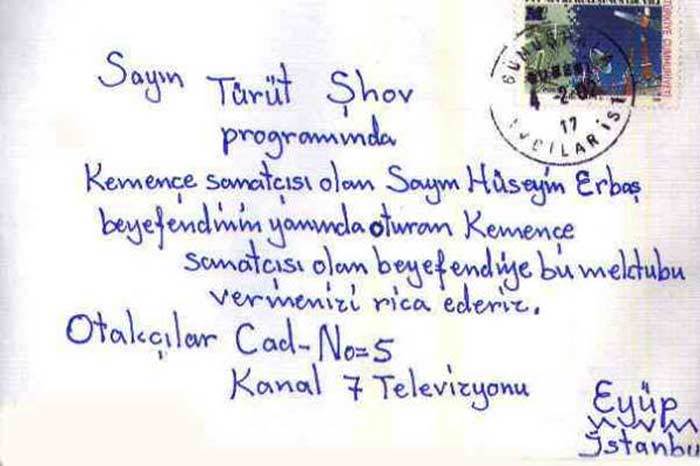 TÜRKİYE CUMHURİYETİ
4 -2.02
17
AVCILAR İST
Sayın Türüt Şhov
programında
Kemençe sanatçısı olan Sayın Hüseyin Erbaş
beyefendinin yanında oturan Kemençe
sanatcısı olan beyefendiye bu mektubu
vermenizi rica ederiz.
Otakçılar Cad-No=5
Kanal 7 Televizyonu
Eyüp
İstanbu